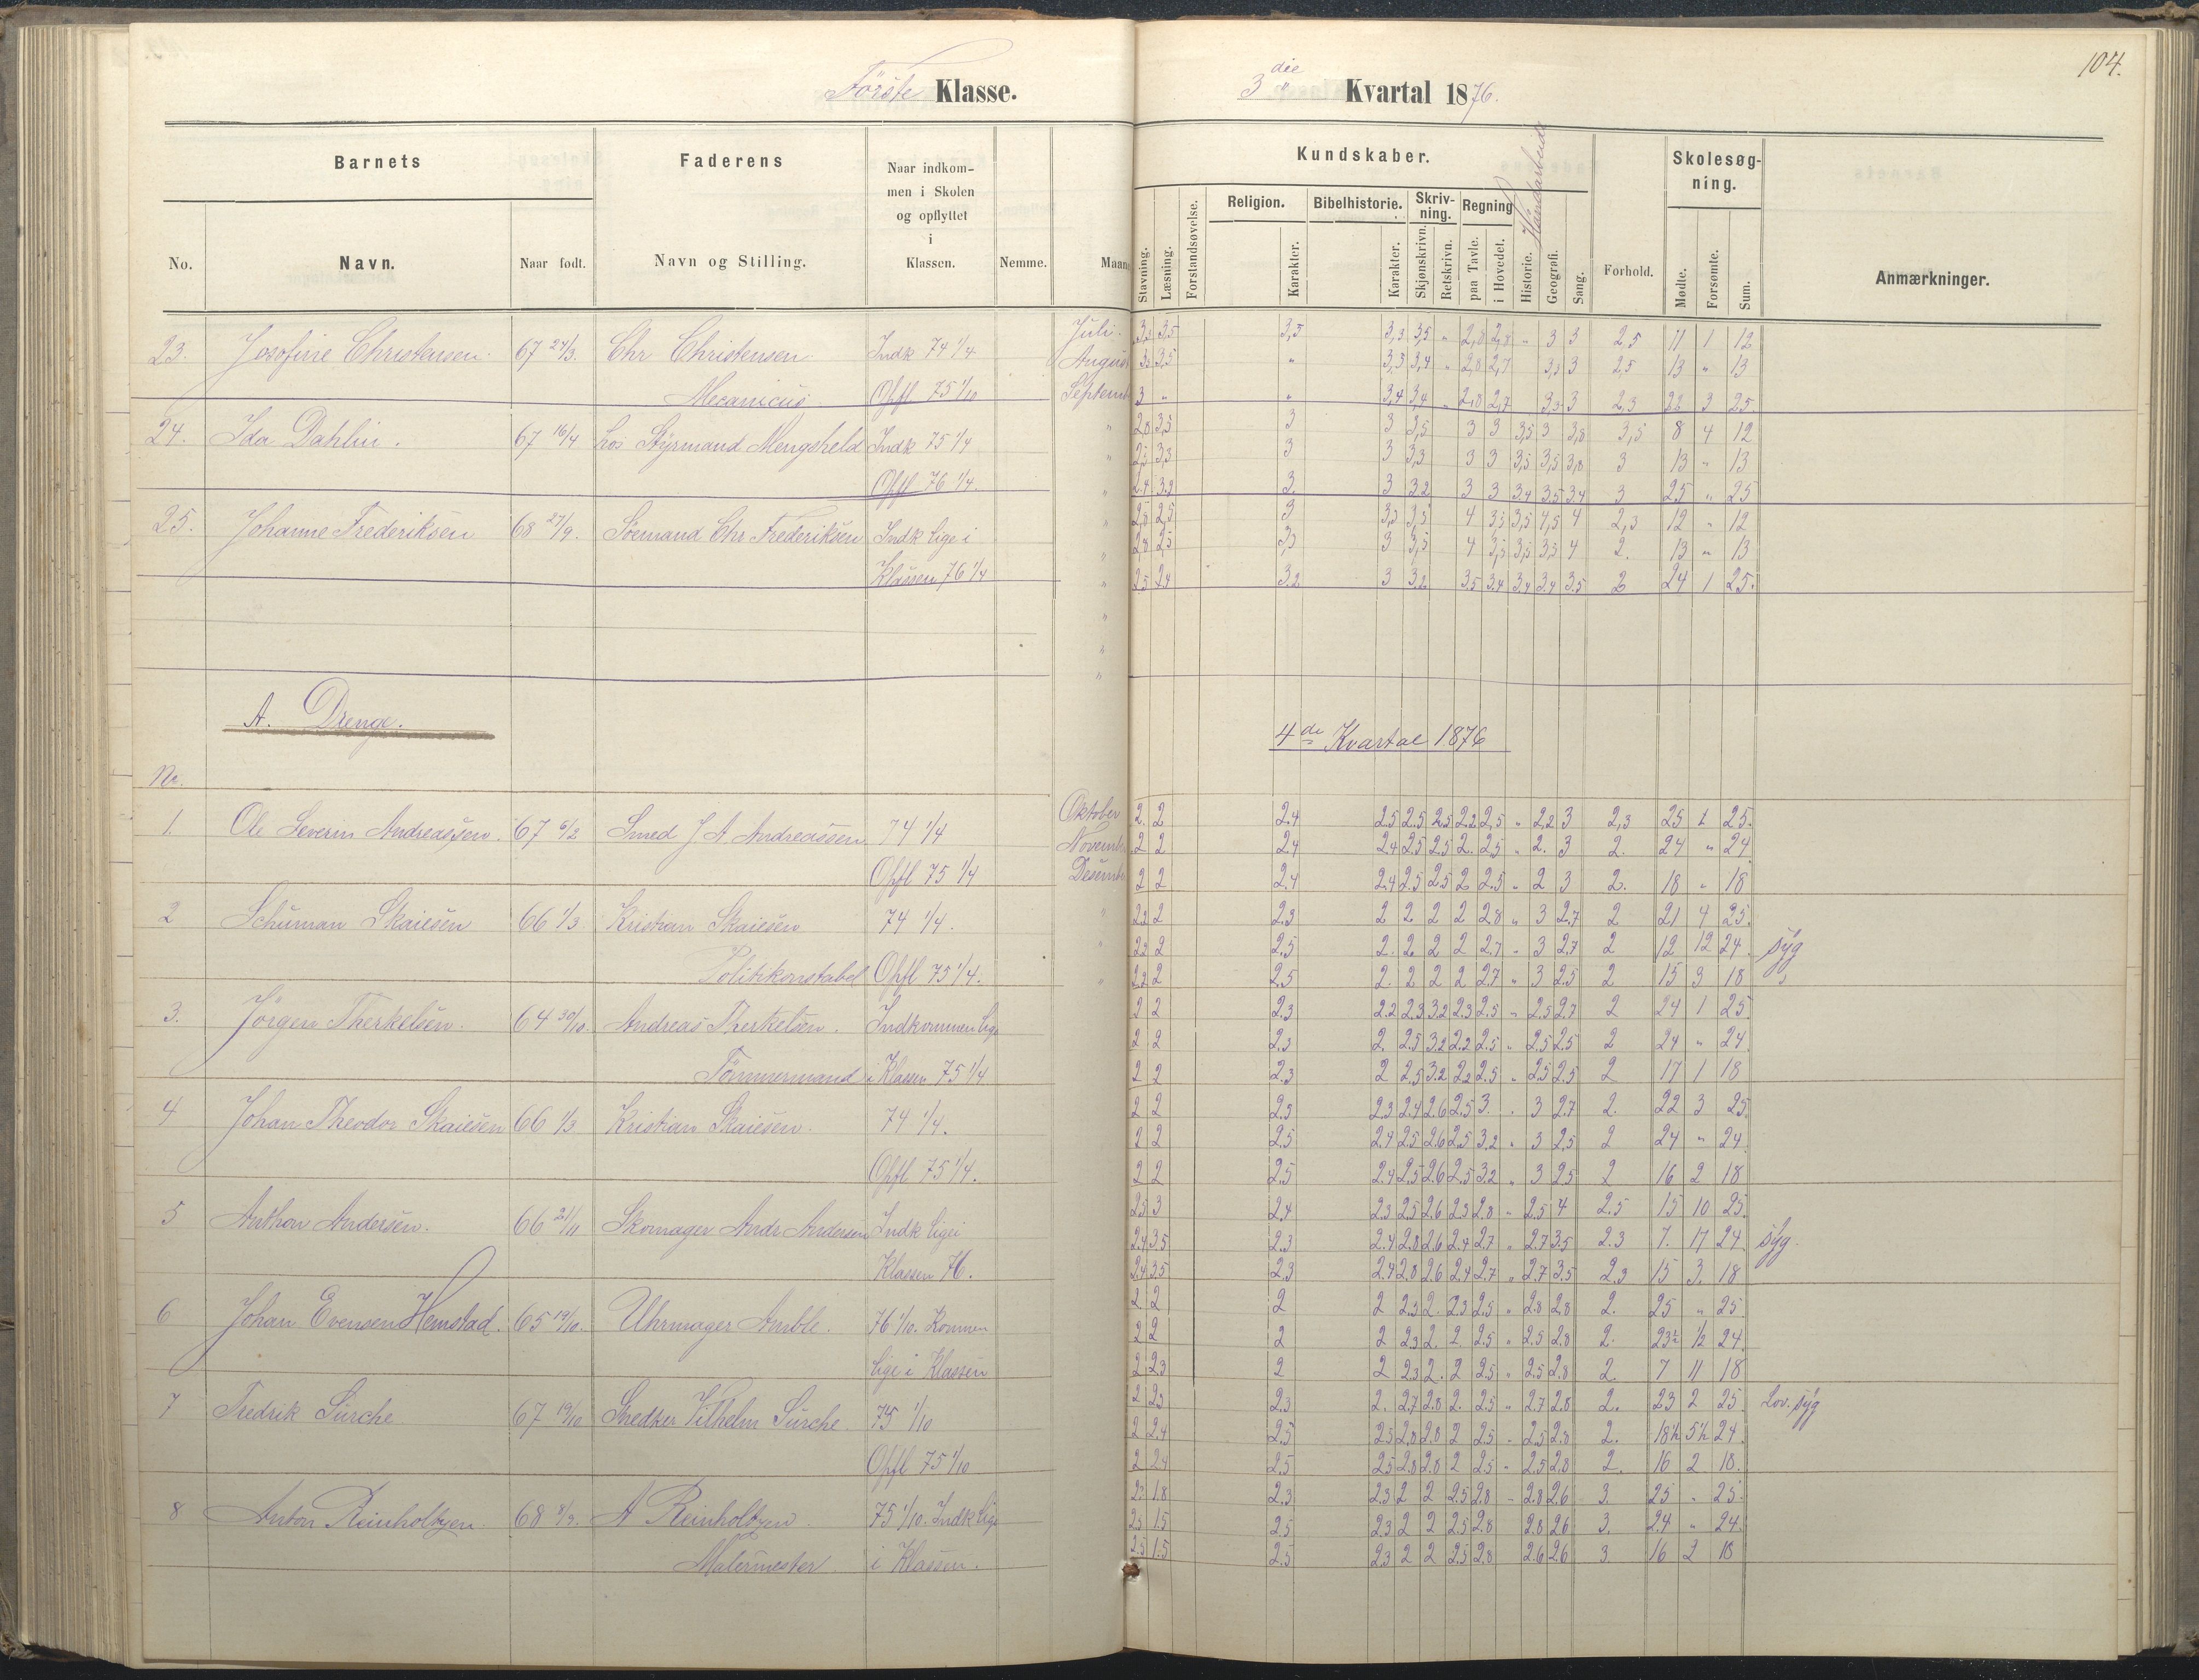 104.
Förste Klasse.
3die Kvartal 1876.
Barnets
Faderens
Naar indkommen i Skolen og opflyttet i Klassen.
Nemme.
Maaned
Kundskaber.
Haandarbeide
Skolesøgning.
No. Navn. Naar født. Navn og Stilling.
Stavning. Læsning. Forstandsøvelse. Religion. Karakter. Bibelhistorie. Karakter. Skrivning. Skjønskrivn. Retskrivn. Regning paa Tavle. i Hovedet. Historie. Geografi. Sang. Forhold. Mødte. Forsømte. Sum. Anmærkninger.
23. Josofine Christensen. 67 24/3. Chr Christensen. Indk 74 1/4 Juli. 3,5 3,5 3,5 3,3 3,5 " 2,8 2,8 " 3 3 2,5 11 1 12
August 3,5 " 3,3 3,4 " 2,8 2,7 3,3 3 2,5 13 " 13
Mecanicus Opfl 75 1/10 Septemb 3 " " 3,4 3,4 " 2,8 2,7 3,3 3 2,3 22 3 25.
24. Ida Dahlin. 67 16/4 hos Styrmand Indk 75 1/4 " 2,8 3,5 3 3 3,5 3 3 3,5 3 3,8 3,5 8 4 12
" 2,5 3,3 3 3 3,3 3 3 3,5 3,5 3,8 3 13 " 13
Opfl 76 1/4. " 2.4 3.2 3. 3 3.2 3 3 3.4 3.5 3.4 3 25 " 25
25. Johanne Frederiksen 68 27/9. Sömand Chr Frederiksen Indk lige i " 2,8 2,5 3 3,3 3,5 4 3,5 3,5 4,5 4 2,3 12 " 12
" 2,8 2,5 3,3 3 3,5 4 3,5 3,5 3,5 4 2. 13 " 13
Klassen 76 1/4 " 2.5 2.4 3.2 3 3.2 3.5 3.4 3.4 3.4 3.5 2 24 1 25.
"
"
"
A. Drenge.
4de Kvartal 1876
Nr.
1. Ole Severin Andreassen. 67 6/2 Smed J A Andreassen 74 1/4 Oktober 2. 2 2.4 2.5 2.5 2.5 2.2 2.5 " 2.2 3 2,3 25 25.
Novemb 2 2 2.4 2.4 2.5 2.5 2. 2.5 " 2. 3 2. 24 " 24
Opfl 75 1/4 Desemb 2 2 2.4 2.4 2.5 2.5 2 2.5 " 2 3 2. 18 " 18
2 Schuman Skaiesen 66 1/3. Kristian Skaiesen 74 1/4. " 2.2 2 2.3 2 2 2 2 2.8 " 3 2.7 2 21 4 25.
" 2.2 2 2.5 2. 2 2 2 2.7 " 3 2.7 2 12 12 24. syg
Politikonstabel Opfl 75 1/4. " 2.2 2 2.5 2. 2 2 2 2.7 " 3 2.5 2 15 3 18 "
3. Jörgen Therkelsen. 64 30/10. Andreas Therkelsen. Indkommen lige 2 2 2.3 2.2 2.3 3.2 2.3 2.5 " 2.5 2.7 2 24 1 25.
2 2 2.3 2. 2.5 3.2 2.2 2.5 " 2.5 2.5 2 24 " 24.
Tömmermand i Klassen 75 1/4 2 2 2.3 2 2.5 3.2 2.2 2.5 " 2.5 2.5 2 17 1 18
4 Johan Theodor Skaiesen 66 1/3. Kristian Skaiesen. 74 1/4. 2 2 2.3 2.3 2.4 2.6 2.5 3. " 3 2.7 2. 22 3 25.
2 2 2.5 2.4 2.5 2.6 2.5 3.2 " 3 2.5 2 24 " 24.
Opfl 75 1/4. 2 2 2.5 2.4 2.5 2.6 2.5 3.2 " 3 2.5 2 16 2 18
5 Anthon Andersen. 66 21/11 Skomager Andr Andersen Indk lige i 2.5 3 2.4 2.3 2.5 2.6 2.3 2.8 " 2.5 4 2.5 15 10 25.
2.4 3.5 2.3 2.4 2.8 2.6 2.4 2.7 " 2.7 3.5 2.3 7. 17 24. syg.
Klassen 76. 2.4 3.5 2.3 2.4 2.8 2.6 2.4 2.7 " 2.7 3.5 2.3 15 3. 18
6 Johan Evensen Hemstad. 65 19/10. Uhrmager Amble. 76 1/10. Kommen 2 2 2 2 2.3 2. 2.3 2.5 " 2.8 2.8 2. 25 " 25
2 2 2 2 2.3 2. 2. 2.5 " 2.5 2.8 2. 23½ ½ 24.
lige i Klassen 2 2.3 2 2 2.3 2. 2 2.5 " 2.5 2.8 2. 7 11 18
7 Fredrik Sürche 67 19/10 Snedker Vilhelm Sürche. 75 1/10 2 2.3 2.3 2. 2.7 2.8 2. 2.5 " 2.7 2.8 2. 23 2 25. Lov. syg
2 2.4 2.5 2.5 2.8 2.8 2 2.5 " 2.5 2.8 2. 18½ 5½ 24.
Opfl 75 1/10 2 2.4 2.5 2.5 2.8 2.8 2 2.5 " 2.5 2.8 2. 16 2 18.
8 Anton Reinholtzen. 68 8/9. A Reinholtzen 75 1/10. Indk lige 2.3 1.8 2.3 2.3 2 2 2.5 2.8 " 2.8 2.6 3. 25 " 25.
2.5 1.5 2.5 2.3 2 2 2.5 2.8 2.8 2.6 3. 24 " 24.
Malermester. i Klassen. 2.5 1.5 2.5 2.3 2 2 2.5 2.8 2.6 2.6 3. 16 2 18